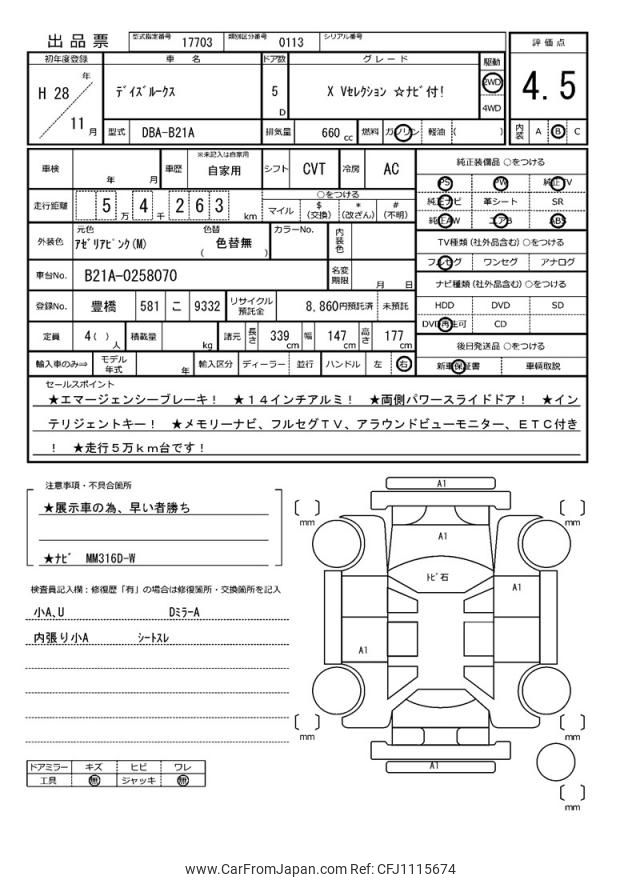 出品票 型式指定番号 17703 類別区分番号 0113 シリアル番号
初年度登録 車名 ドア数 グレード 駆動 評価点
H 28 年 ﾃﾞｲｽﾞﾙｰｸｽ 5 D X Vｾﾚｸｼｮﾝ ☆ﾅﾋﾞ付! 2WD 4WD 4.5
11 月 型式 DBA-B21A 排気量 660 cc 燃料 ガソリン 軽油 ( ) 内装 A B C
車検 年 月 車歴 ※未記入は自家用 自家用 シフト CVT 冷房 AC 純正装備品 ○をつける
PS PW 純正TV
走行距離 5 万 4 千 2 6 3 km ○をつける マイル $(交換) *(改ざん) #(不明) 純正ナビ 革シート SR
純正AW エアB ABS
外装色 元色 ｱｾﾞﾘｱﾋﾟﾝｸ(M) 色替 ( 色替無 ) カラーNo. 内装色 TV種類(社外品含む) ○をつける
フルセグ ワンセグ アナログ
車台No. B21A-0258070 名変期限 月 日 ナビ種類(社外品含む) ○をつける
登録No. 豊橋 581 こ 9332 リサイクル預託金 8,860円預託済 未預託 HDD DVD SD
DVD再生可 CD
定員 4( ) 人 積載量 kg 諸元 長さ 339 cm 幅 147 cm 高さ 177 cm 後日発送品 ○をつける
輸入車のみ⇒ モデル年式 年 輸入区分 ディーラー 並行 ハンドル 左 右 新車保証書 車輌取説
セールスポイント
★エマージェンシーブレーキ! ★14インチアルミ! ★両側パワースライドドア! ★イン
テリジェントキー! ★メモリーナビ、フルセグTV、アラウンドビューモニター、ETC付き
! ★走行5万km台です!
注意事項・不具合箇所
★展示車の為、早い者勝ち
★ﾅﾋﾞ MM316D-W
検査員記入欄:修復歴「有」の場合は修復箇所・交換箇所を記入
小A、U DﾐﾗｰA
内張り小A ｼｰﾄｽﾚ
ドアミラー キズ ヒビ ワレ
工具 無 ジャッキ 無
A1
mm mm
A1
ﾄﾋﾞ石
A1
A1
mm mm
A1
mm
www.CarFromJapan.com Ref: CFJ1115674